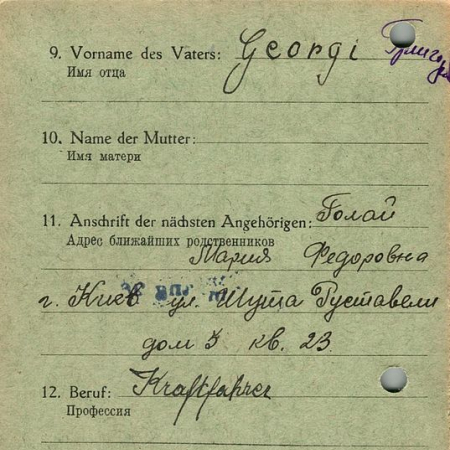 9. Vorname des Vaters: Georgi
Имя отца
10. Name der Mutter:
Имя матери
11. Anschrift der nächsten Angehörigen: Голай
Адрес ближайших родственников
Мария Федоровна
г. Киев ул. Шута Руставели
дом 5 кв. 23
12. Beruf: Kraftfahrer
Профессия